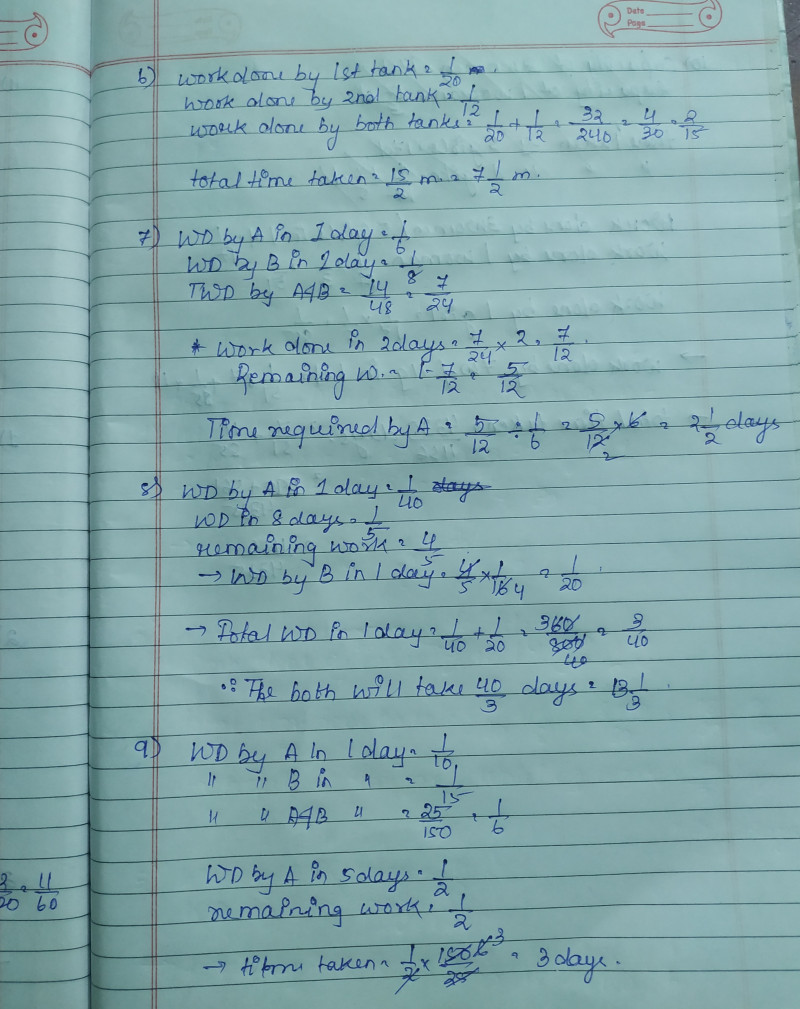 Date
Page
6) work done by 1st tank = 1/20 m.
work done by 2nd tank = 1/12
work done by both tanks = 1/20 + 1/12 = 32/240 = 4/30 = 2/15
total time taken = 15/2 m. = 7 1/2 m.
7) WD by A in 1 day = 1/6
WD by B in 1 day = 1/8
TWD by A&B = 14/48 = 7/24
* Work done in 2 days = 7/24 × 2 = 7/12.
Remaining w. = 1 - 7/12 = 5/12
Time required by A = 5/12 ÷ 1/6 = 5/12 × 6 = 2 1/2 days
2
8) WD by A in 1 day = 1/40 days
WD in 8 days = 1/5
remaining work = 4/5
→ WD by B in 1 day = 4/5 × 1/16 4 = 1/20.
→ Total WD in 1 day = 1/40 + 1/20 = 360/800 = 3/40
40
∴ The both will take 40/3 days = 13 1/3.
9) WD by A in 1 day = 1/10
" " B in " = 1/15
" " A&B " = 25/150 = 1/6
WD by A in 5 days = 1/2
remaining work = 1/2
→ time taken = 1/2 × 150 6 3/25 = 3 days.
= 11/60